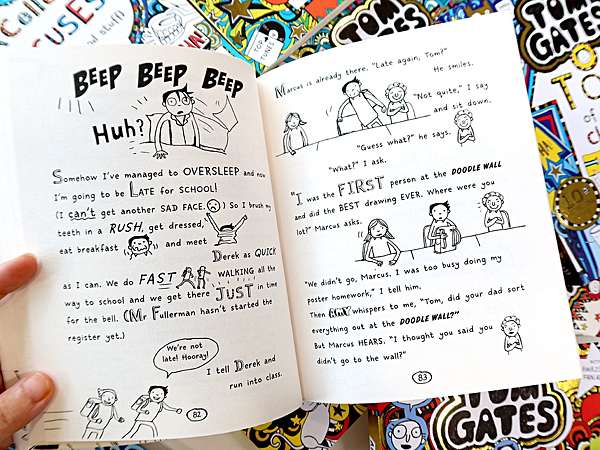 Colle
USES
and stuff)
TOM
TUNES
TOM
GATES
TOM
GATES
BEEP BEEP BEEP
Huh?
Somehow I've managed to OVERSLEEP and now
I'm going to be LATE for SCHOOL!
(I can't get another SAD FACE.) So I brush my
teeth in a RUSH, get dressed,
eat breakfast and meet Derek as QUICK
as I can. We do FAST WALKING all the
way to school and we get there JUST in time
for the bell. (Mr Fullerman hasn't started the
register yet.)
We're not
late! Hooray!
I tell Derek and
run into class.
82
Marcus is already there. "Late again, Tom?"
He smiles.
"Not quite," I say
and sit down.
"Guess what?" he says.
"What?" I ask.
"I was the FIRST person at the DOODLE WALL
and did the BEST drawing EVER. Where were you
lot?" Marcus asks.
"We didn't go, Marcus. I was too busy doing my
poster homework," I tell him.
Then AMY whispers to me, "Tom, did your dad sort
everything out at the DOODLE WALL?"
But Marcus HEARS. "I thought you said you
didn't go to the wall?"
83
TOM
GATES